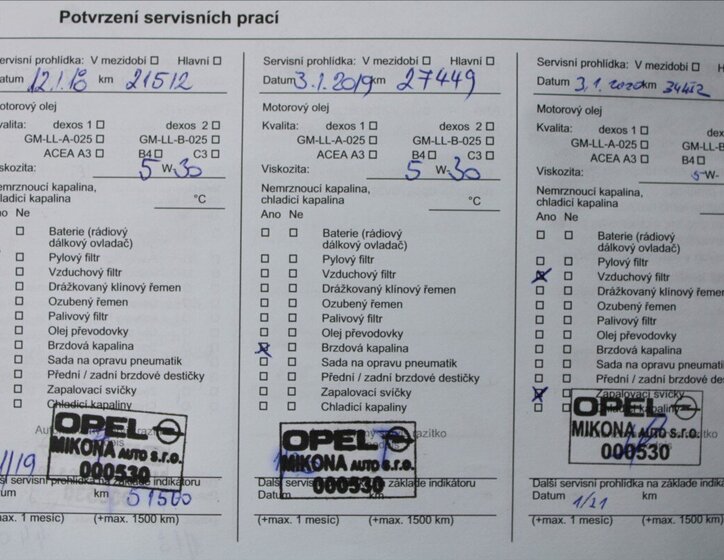 Potvrzení servisních prací
ervisní prohlídka: V mezidobí Hlavní
Datum 12.1.18 km 21512
Motorový olej
Kvalita: dexos 1 dexos 2
GM-LL-A-025 GM-LL-B-025
ACEA A3 B4 C3
Viskozita: 5 W 30
Nemrznoucí kapalina,
chladicí kapalina °C
Ano Ne
Baterie (rádiový
dálkový ovladač)
Pylový filtr
Vzduchový filtr
Drážkovaný klínový řemen
Ozubený řemen
Palivový filtr
Olej převodovky
Brzdová kapalina
Sada na opravu pneumatik
Přední / zadní brzdové destičky
Zapalovací svíčky
Chladicí kapaliny
OPEL
MIKONA AUTO s.r.o.
000530
1/19
servisní prohlídka na základě indikátoru
km 51500
(+max. 1 měsíc) (+max. 1500 km)
Servisní prohlídka: V mezidobí Hlavní
Datum 3.1.2019 km 27449
Motorový olej
Kvalita: dexos 1 dexos 2
GM-LL-A-025 GM-LL-B-025
ACEA A3 B4 C3
Viskozita: 5 W 30
Nemrznoucí kapalina,
chladicí kapalina °C
Ano Ne
Baterie (rádiový
dálkový ovladač)
Pylový filtr
Vzduchový filtr
Drážkovaný klínový řemen
Ozubený řemen
Palivový filtr
Olej převodovky
Brzdová kapalina
Sada na opravu pneumatik
Přední / zadní brzdové destičky
Zapalovací svíčky
Chladicí kapaliny
OPEL
MIKONA AUTO s.r.o.
000530
Další servisní prohlídka na základě indikátoru
Datum km
(+max. 1 měsíc) (+max. 1500 km)
Servisní prohlídka: V mezidobí
Datum 3.1.2020 km
Motorový olej
Kvalita: dexos 1
GM-LL-A-025 GM-LL-B
ACEA A3 B4
Viskozita: 5 W-
Nemrznoucí kapalina,
chladicí kapalina
Ano Ne
Baterie (rádiový
dálkový ovladač)
Pylový filtr
Vzduchový filtr
Drážkovaný klínový řemen
Ozubený řemen
Palivový filtr
Olej převodovky
Brzdová kapalina
Sada na opravu pneumatik
Přední / zadní brzdové destičky
Zapalovací svíčky
Chladicí kapaliny
OPEL
MIKONA AUTO s.r.o.
000530
Další servisní prohlídka na základě indik
Datum 1/21 km
(+max. 1 měsíc) (+max. 1500 km)